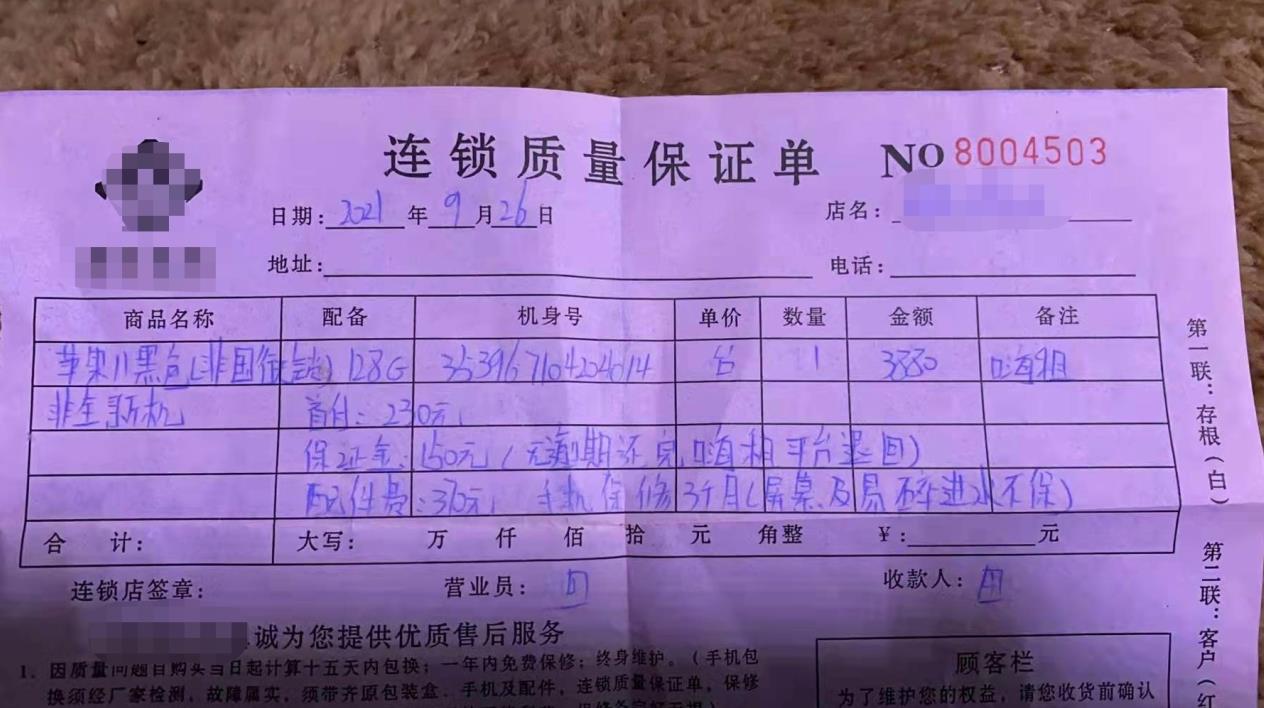 连锁质量保证单 NO 8004503
日期：2021年9月26日 店名：
地址： 电话：
商品名称 配备 机身号 单价 数量 金额 备注
苹果11黑色(非国行 128G 353967104204014 台 1 3880 嗨租
非全新机 首付：230元
保证金：150元(无逾期还完嗨租平台退回)
配件费：370元 手机保修3个月(屏幕及易碎进水不保)
合 计： 大写： 万 仟 佰 拾 元 角整 ¥： 元
连锁店签章： 营业员： 收款人：
诚为您提供优质售后服务
1. 因质量问题自购买当日起计算十五天内包换；一年内免费保修；终身维护。(手机包
换须经厂家检测，故障属实，须带齐原包装盒、手机及配件，连锁质量保证单，保修
顾客栏
为了维护您的权益，请您收货前确认
第一联：存根(白)
第二联：客户(红